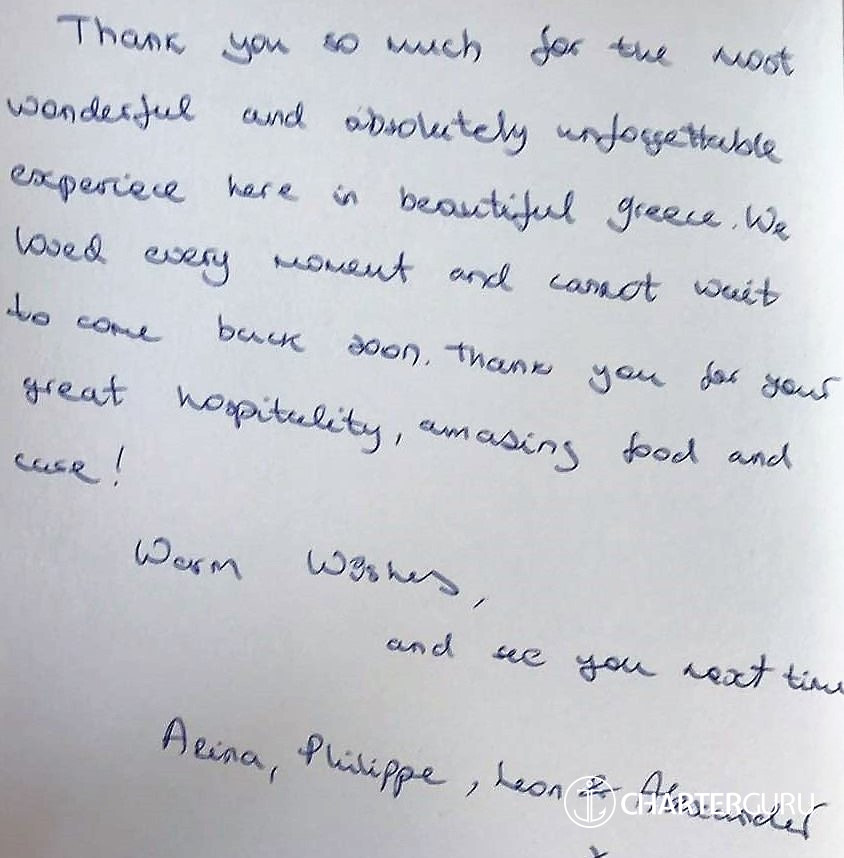 Thank you so much for the most
wonderful and absolutely unforgettable
experiece here in beautiful greece. We
loved every moment and cannot wait
to come back soon. Thank you for your
great hospitality, amazing food and
care!
Warm Wishes,
and see you next time
Arina, Philippe, Leon & Alexander
CHARTERGURU